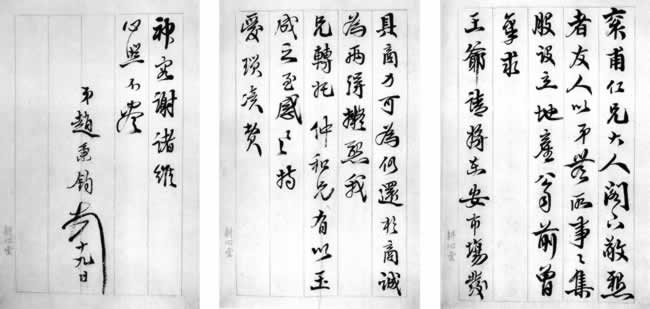 奕甫仁兄大人閣下敬懇
者友人以弟無所事々集
股設立地產公司前曾
奉求
王爺請將東安市場發
具商力可為仍還於商誠
為兩得擬懇我
兄轉託仲和兄有以玉
成之至感々々恃
愛瑣瀆費
神容謝諸維
心照不盡
弟趙秉鈞頓十九日